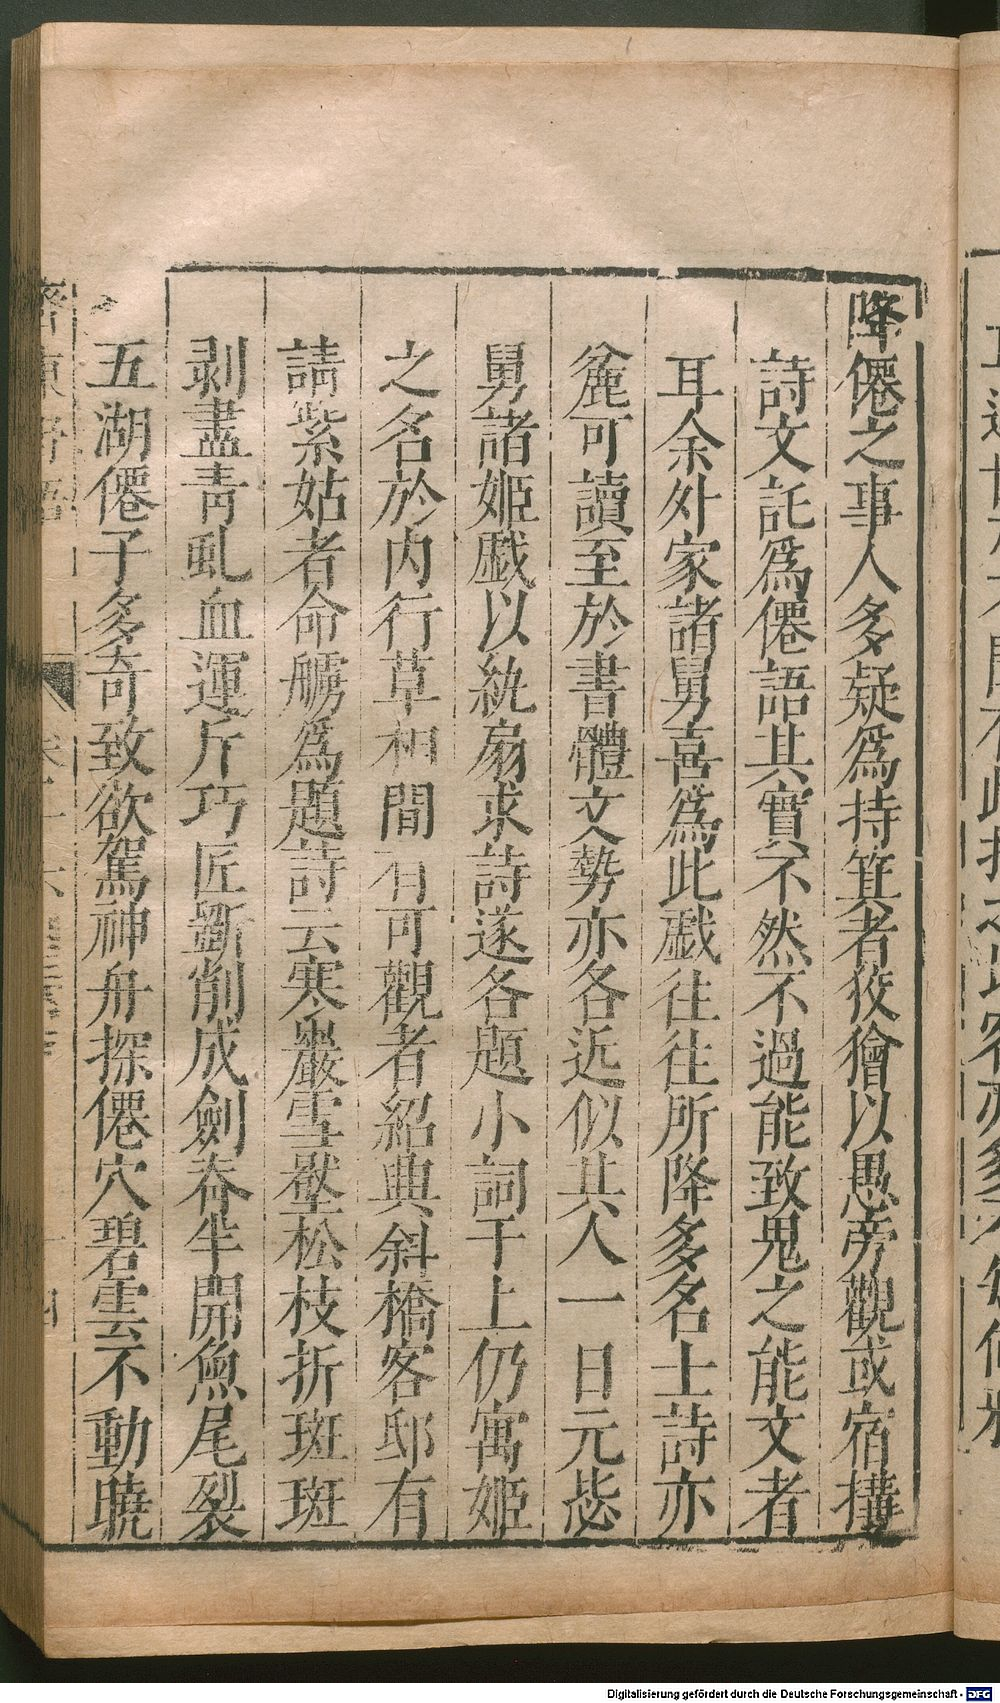 降僊之事人多疑爲持箕者狡獪以愚旁觀或宿搆
詩文託爲僊語其實不然不過能致鬼之能文者
耳余外家諸舅喜爲此戲往往所降多名士詩亦
粦可讀至於書體文勢亦各近似其人一日元毖
舅諸姬戲以紈扇求詩遂各題小詞于上仍寓姬
之名於內行草相間有可觀者紹興斜橋客邸有
請紫姑者命觴爲題詩云寒巖雪壓松枝折斑斑
剥盡青虬血運斤巧匠斵削成劍脊半開魚尾裂
五湖僊子多奇致欲駕神舟探僊穴碧雲不動曉
齊東野語
卷十六
十四
Digitalisierung gefördert durch die Deutsche Forschungsgemeinschaft - DFG